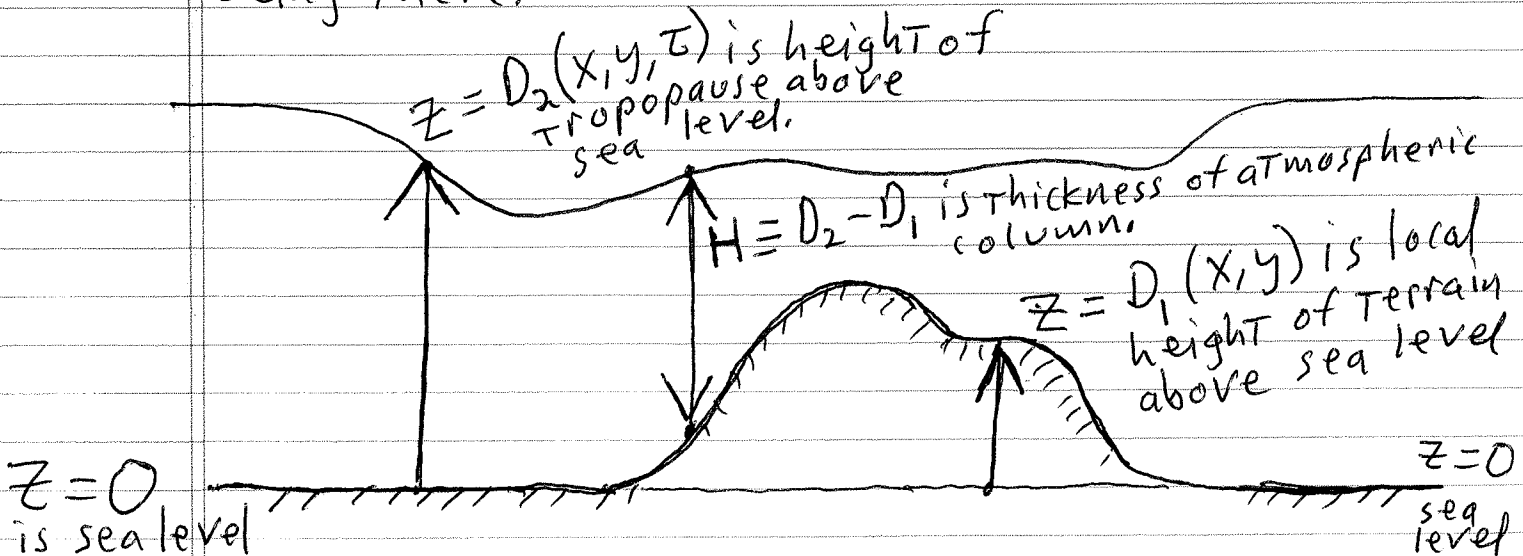 Z = D₂(x,y,τ) is height of
tropopause above
sea level.
H ≡ D₂ - D₁ is thickness of atmospheric
column.
Z = D₁(x,y) is local
height of terrain
above sea level
Z=0
is sea level
Z=0
sea
level